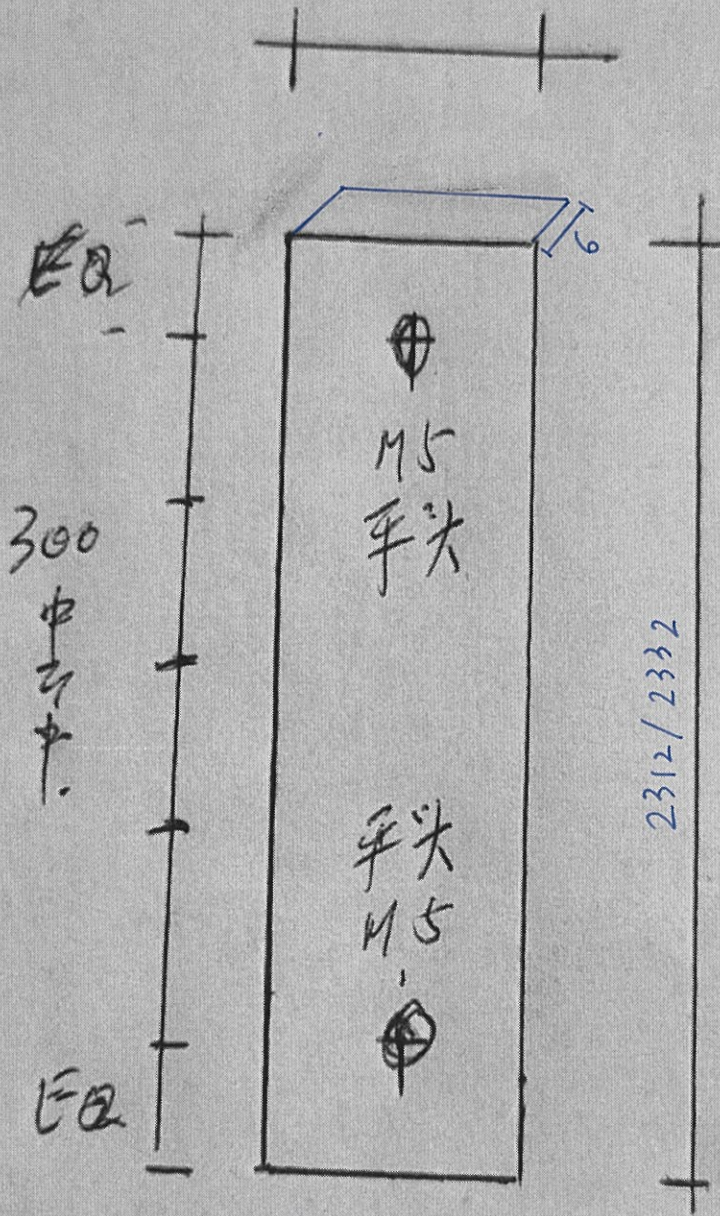 EQ
6
M5
平头
300
中
至
中.
2312/2332
平头
M5
EQ